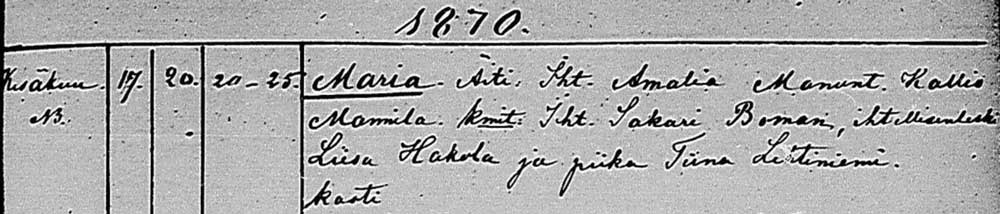 1870.
Kesäkuu. 17. 20. 20-25. Maria. Äiti: Iht. Amalia Manunt. Kallio
N3. Mannila. kmit: Iht. Sakari Boman, ihtellisenleski
Liisa Hakola ja piika Tiina Lehtiniemi.
kasti